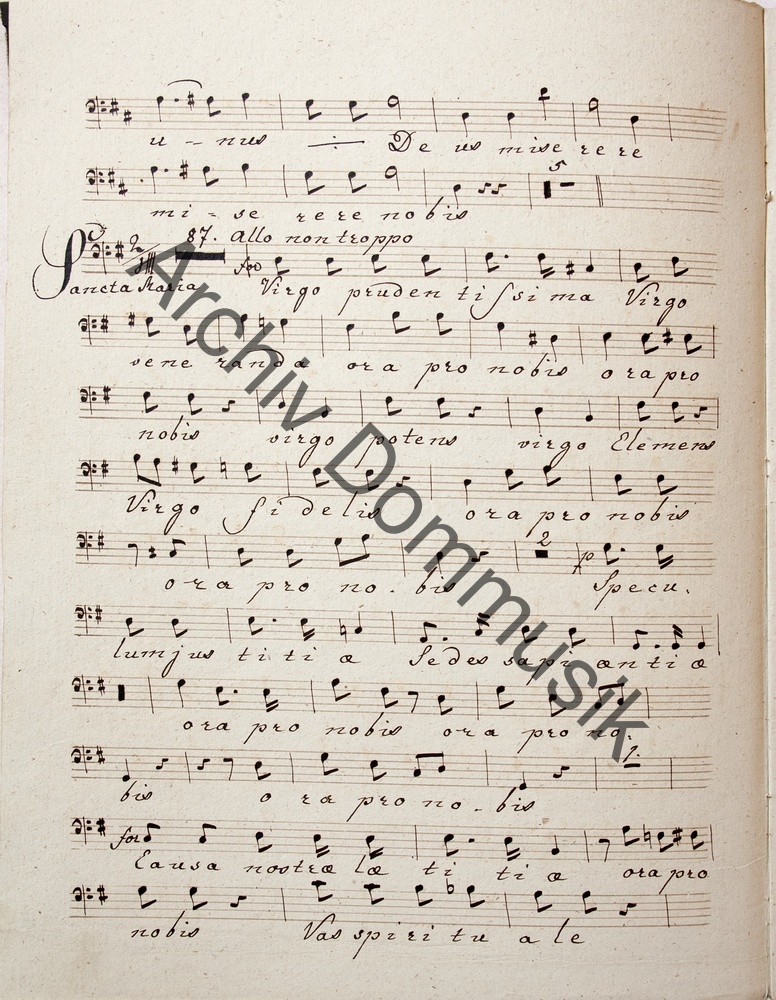 u - nus De us mise re re
5
mi - se re re no bis
87. Allo non troppo
2
for
Sancta Maria Virgo pruden ti ssi ma Virgo
vene randa ora pro nobis ora pro
nobis virgo potens virgo Clemens
Virgo fi delis ora pro nobis
2 p
ora pro no - bis Specu.
lum jus ti ti æ Sedes sapi æn ti æ
ora pro nobis ora pro no:
1.
bis o ra pro no - bis
for
Causa nostræ læ ti ti æ ora pro
nobis Vas spi ri tu a le
Archiv Dommusik